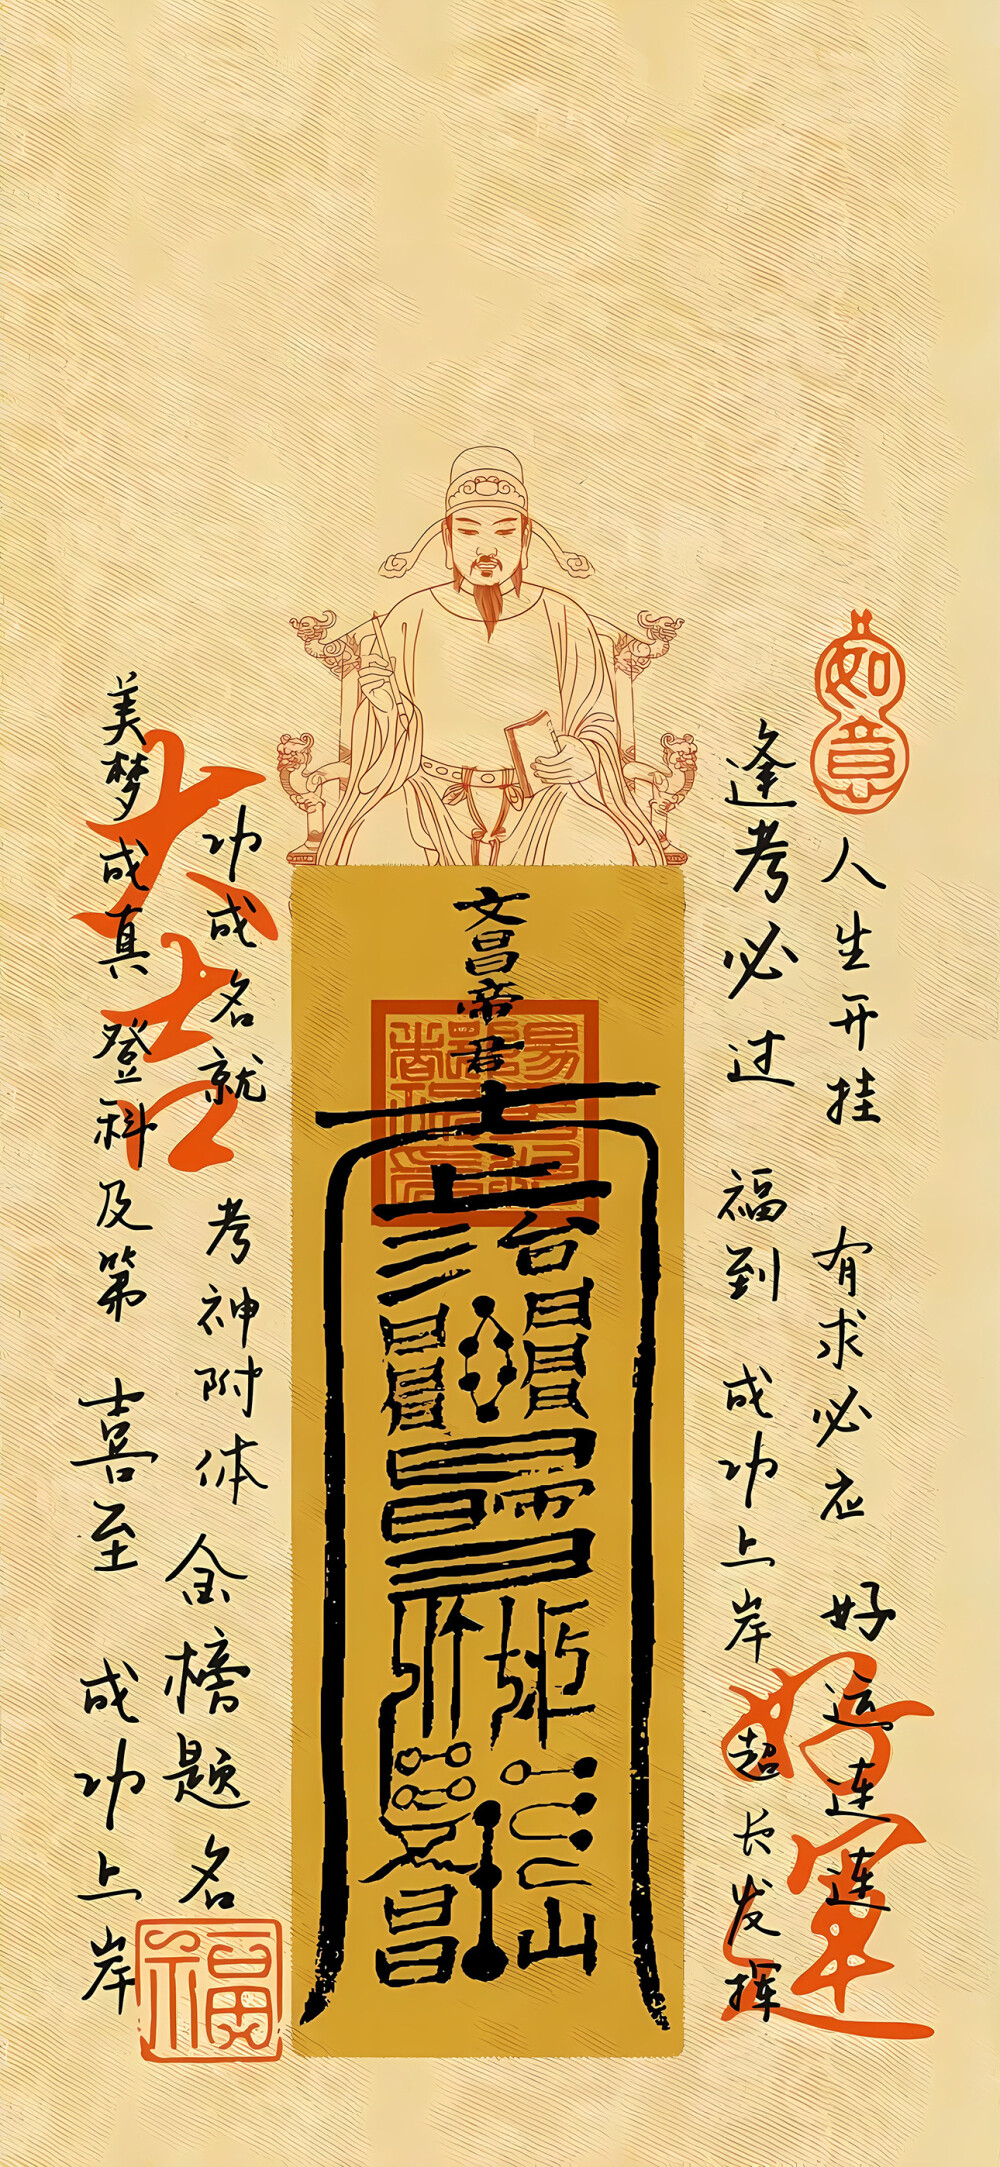 如意
人生开挂 有求必应 好运连连连
逢考必过 福到 成功上岸 超长发挥
好运
文昌帝君
台
昌
山
功成名就 考神附体 金榜题名
大吉
美梦成真 登科及第 喜至 成功上岸
福